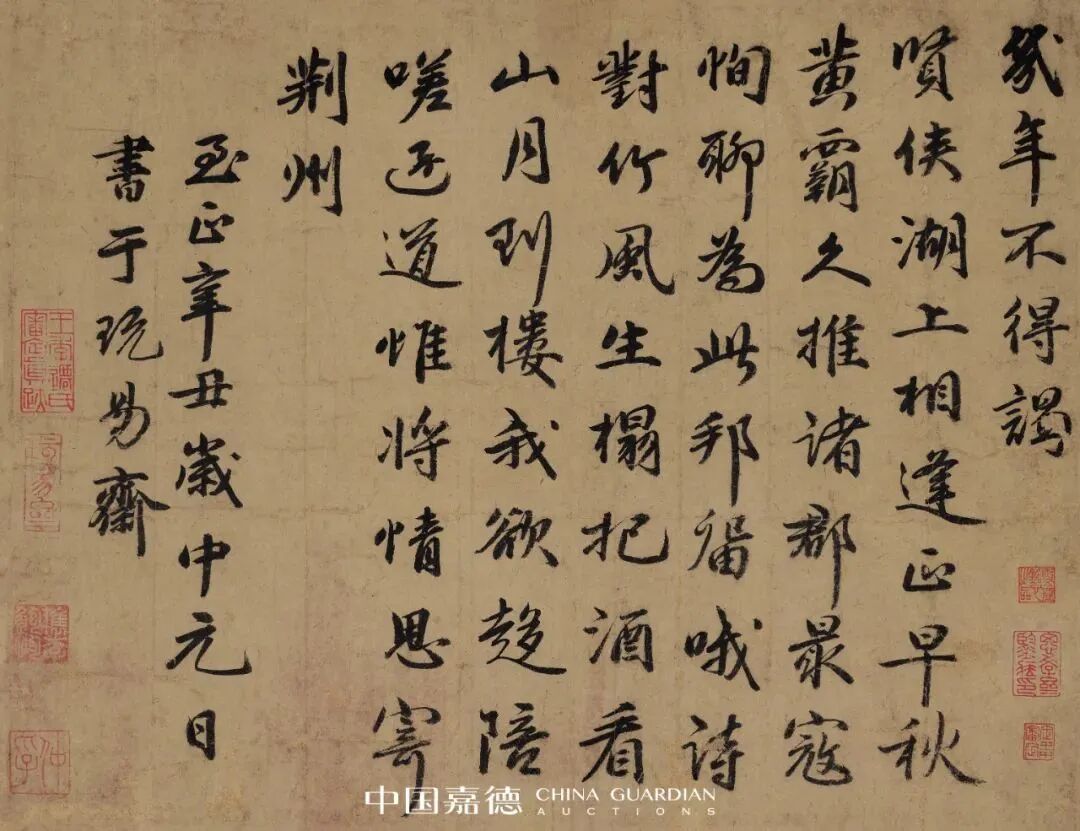 幾年不得謁
賢侯湖上相逢正早秋
黄霸久推諸郡最寇
恂聊為此邦留哦詩
對竹風生榻把酒看
山月到樓我欲趍陪
嗟迂道惟將情思寄
荆州
至正辛丑歲中元日
書于玩易齋
中国嘉德 CHINA GUARDIAN
AUCTIONS